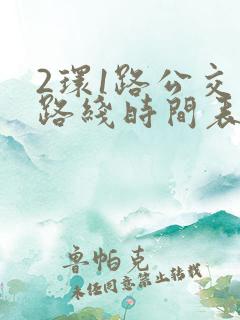 2環1路公交
路綫時間表
魯帕克
未经同意禁止转载